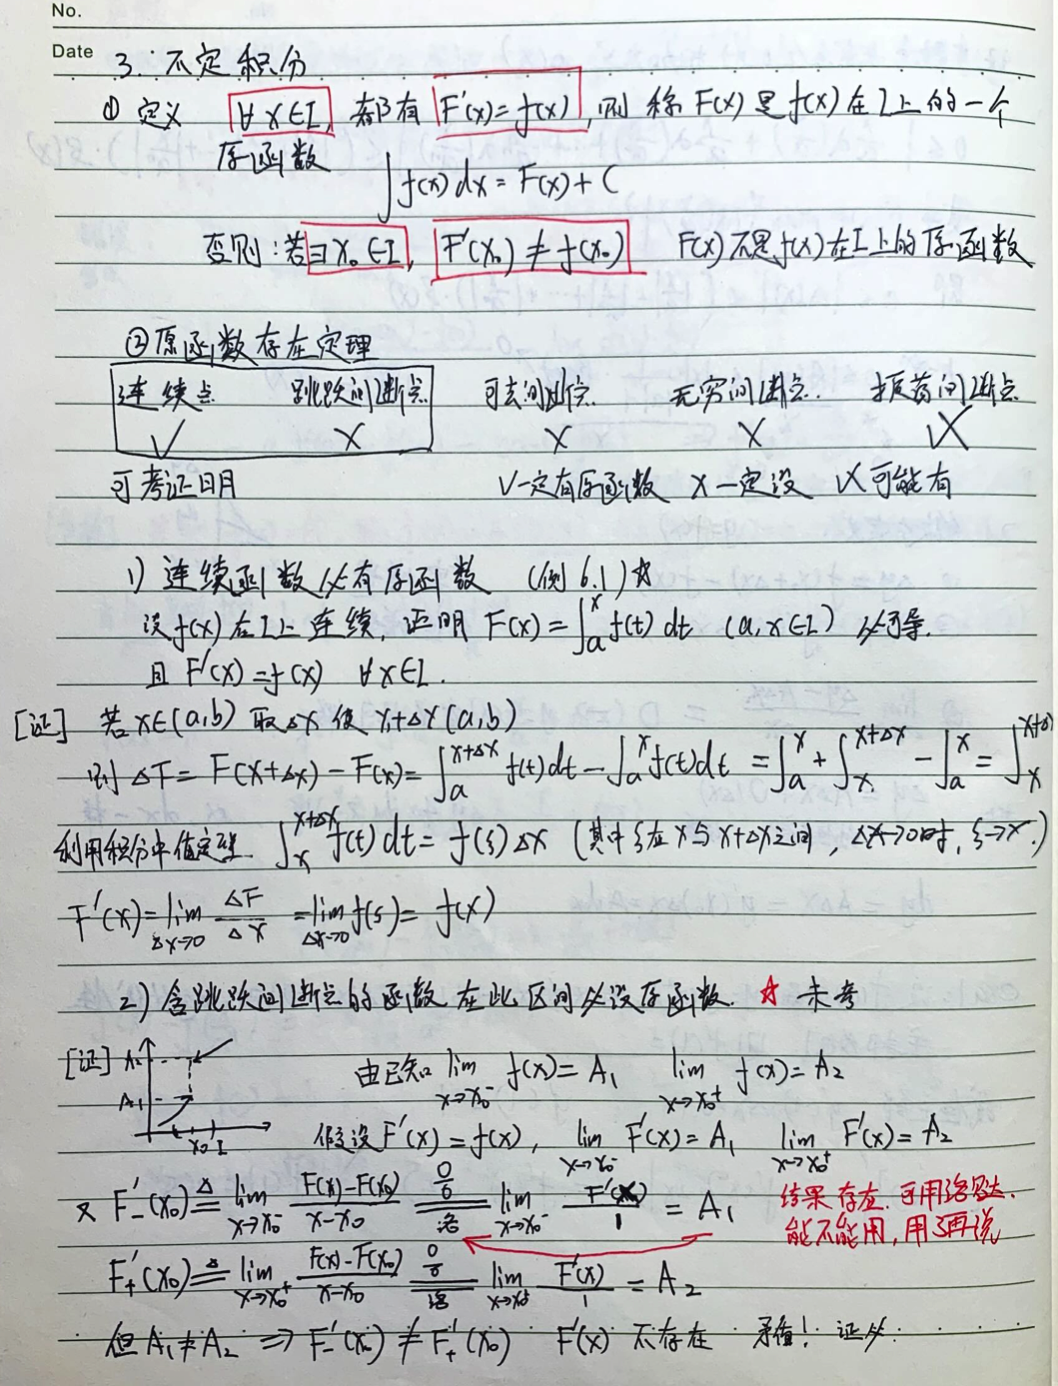 No.
Date
3. 不定积分
① 定义 ∀x∈I, 都有 F'(x)=f(x), 则称 F(x) 是 f(x) 在 I 上的一个
原函数
∫f(x)dx = F(x)+C
否则:若∃x₀∈I, F'(x₀)≠f(x₀) F(x)不是f(x)在I上的原函数
②原函数存在定理
连续点 跳跃间断点 可去间断点 无穷间断点. 振荡间断点
√ × × × √×
可考证明 √一定有原函数 ×一定没 √×可能有
1) 连续函数必有原函数 (例6.1)☆
设f(x)在I上连续, 证明 F(x)=∫ₐˣf(t)dt (a,x∈I) 必可导.
且 F'(x)=f(x) ∀x∈I.
[证] 若x∈(a,b) 取Δx使 x+Δx(a,b)
则 ΔF = F(x+Δx)-F(x)=∫ₐ^{x+Δx}f(t)dt-∫ₐˣf(t)dt=∫ₐˣ+∫ₓ^{x+Δx}-∫ₐˣ=∫ₓ^{x+Δ}
利用积分中值定理 ∫ₓ^{x+Δx}f(t)dt=f(ξ)Δx (其中ξ在x与x+Δx之间, Δx→0时, ξ→x.)
F'(x)=lim_{Δx→0} ΔF/Δx = lim_{Δx→0} f(ξ)= f(x)
2) 含跳跃间断点的函数在此区间必没原函数. ☆ 未考
[证] A₂ A₁ x₀ I 由已知 lim_{x→x₀⁻} f(x)=A₁ lim_{x→x₀⁺} f(x)=A₂
假设F'(x)=f(x), lim_{x→x₀⁻} F'(x)=A₁ lim_{x→x₀⁺} F'(x)=A₂
又 F'₋(x₀) ≜ lim_{x→x₀⁻} (F(x)-F(x₀))/(x-x₀) =(0/0 洛)= lim_{x→x₀⁻} F'(x)/1 = A₁ 结果存在.可用洛必达.
能不能用,用了再说
F'₊(x₀) ≜ lim_{x→x₀⁺} (F(x)-F(x₀))/(x-x₀) =(0/0 洛)= lim_{x→x₀⁺} F'(x)/1 = A₂
但 A₁≠A₂ ⇒ F'₋(x₀)≠F'₊(x₀) F'(x) 不存在 矛盾! 证必.